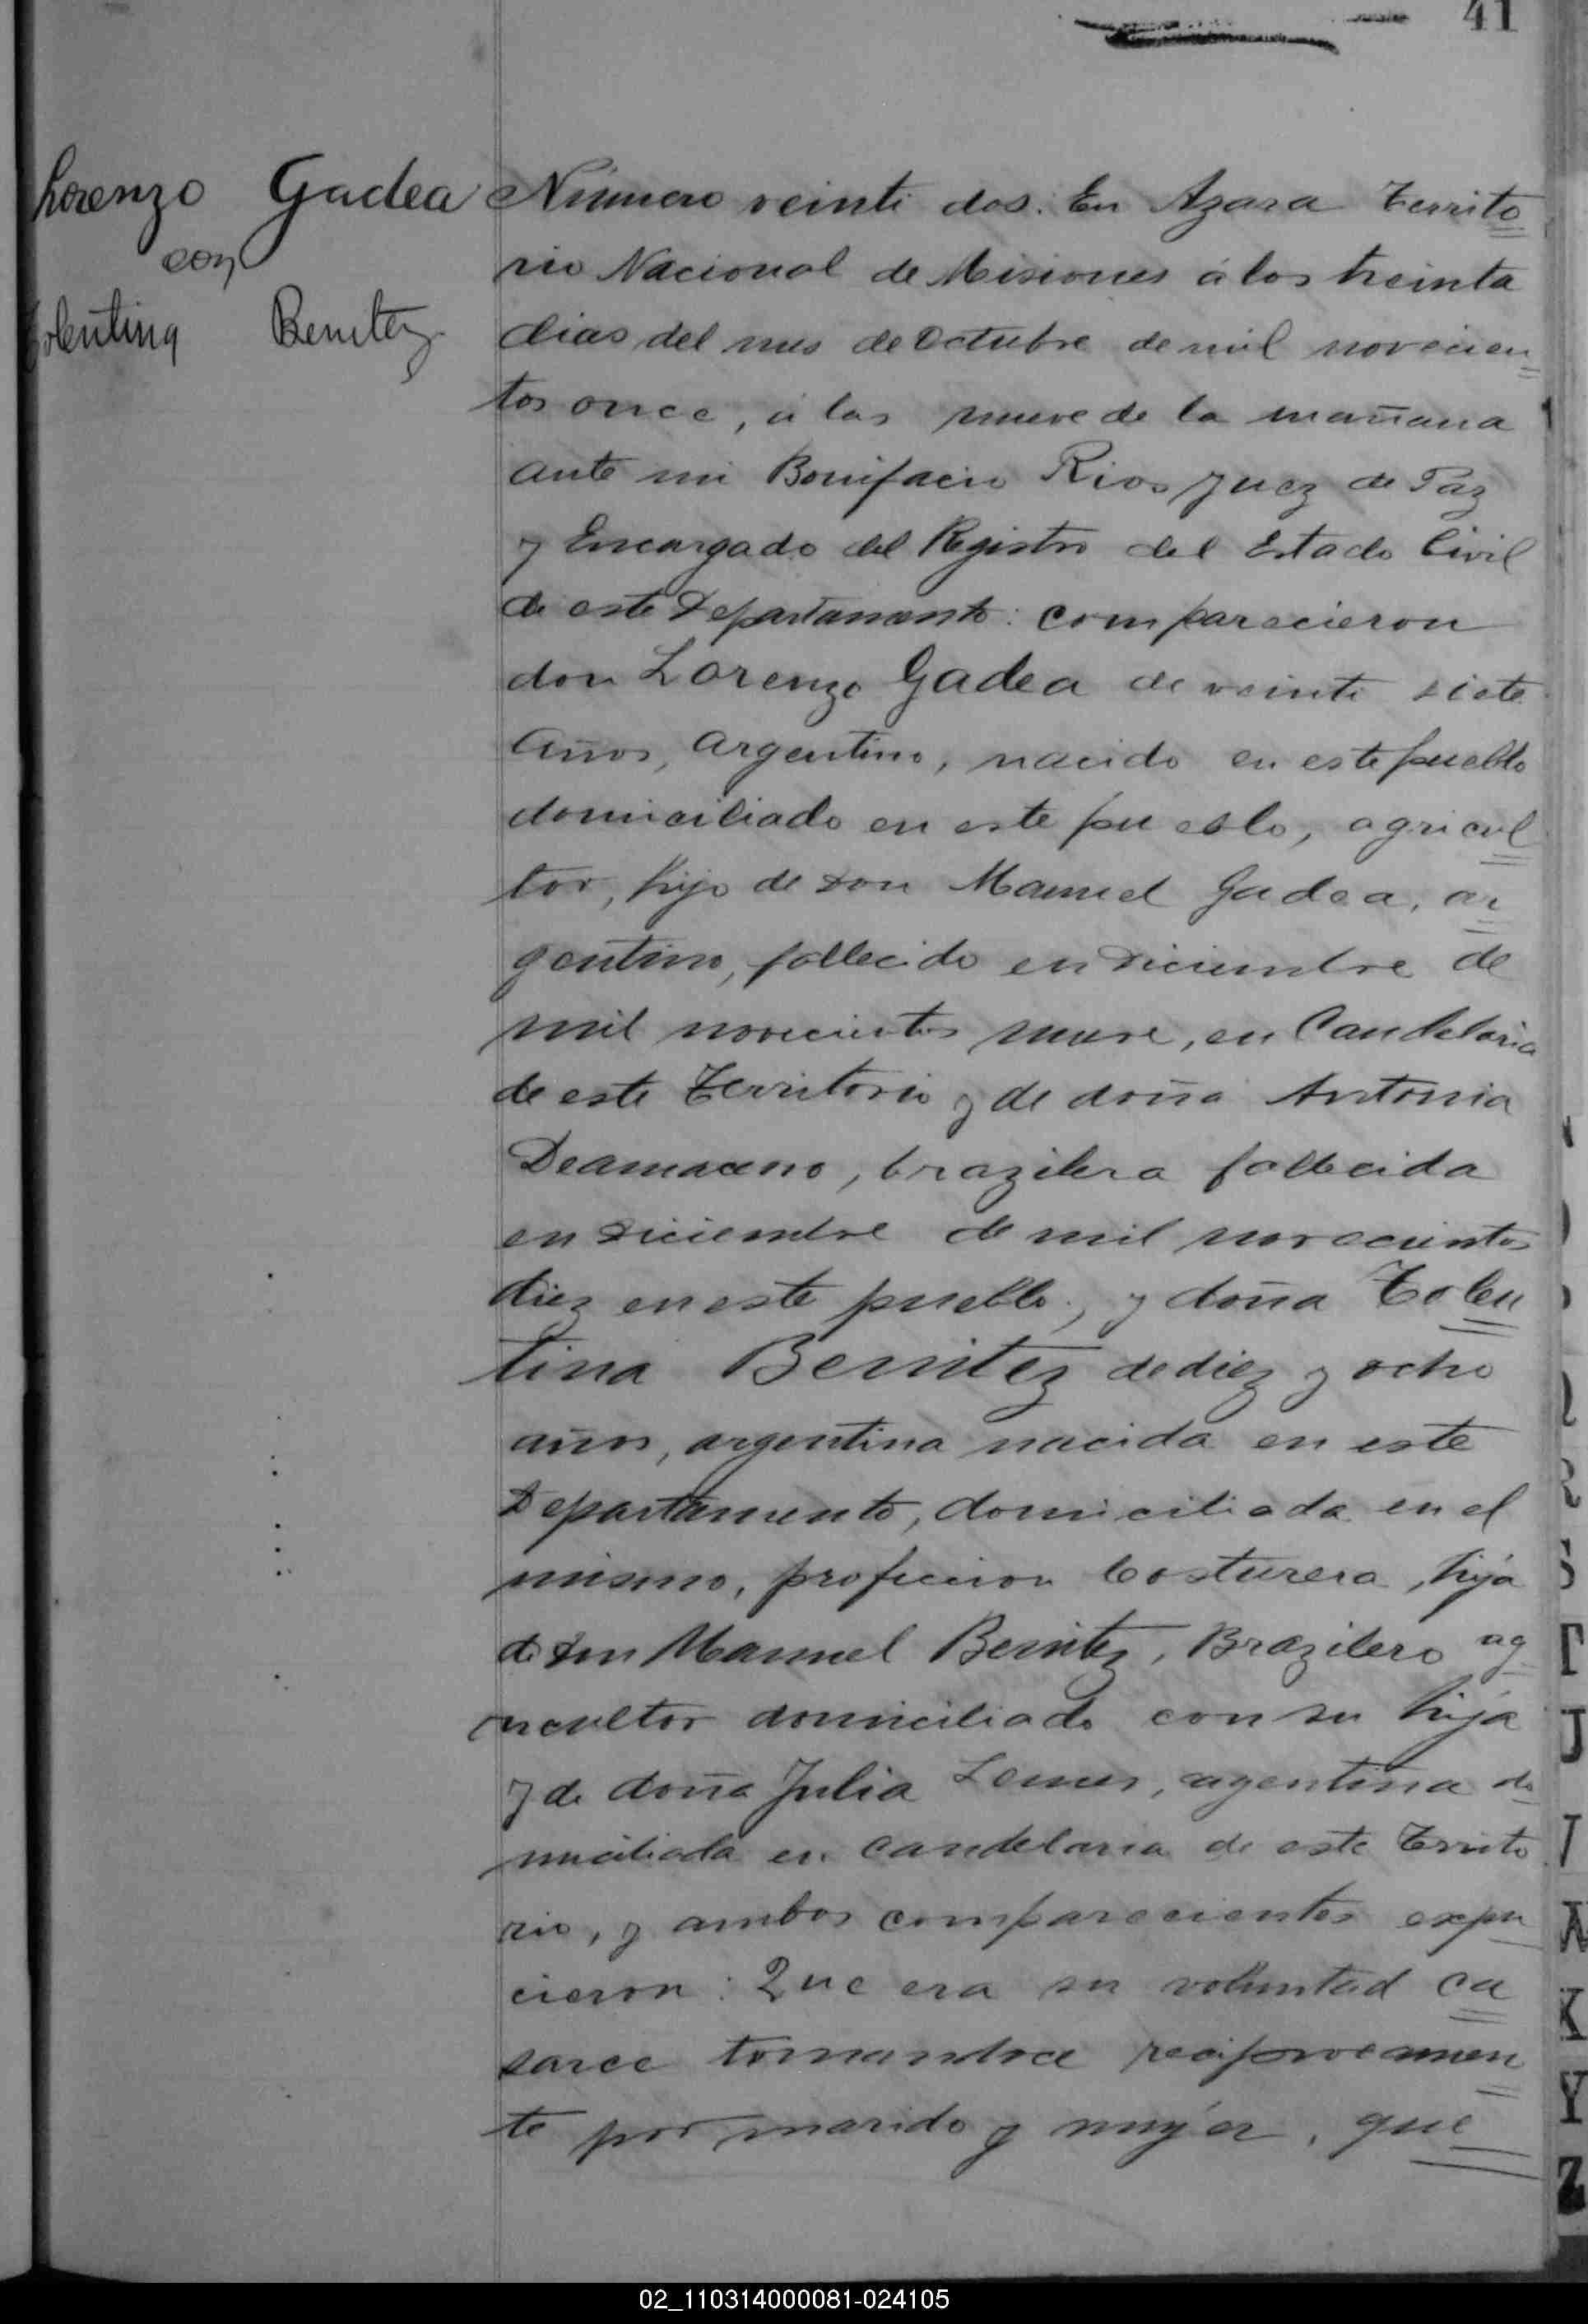 41
Lorenzo Gadea
con
Tolentina Benitez
Número veinti dos. En Azara Territo
rio Nacional de Misiones á los treinta
dias del mes de Octubre de mil novecien
tos once, á las nueve de la mañana
ante mi Bonifacio Rios Juez de Paz
y Encargado del Registro del Estado Civil
de este Departamento: comparecieron
don Lorenzo Gadea de veinti siete
años, argentino, nacido en este pueblo
domiciliado en este pueblo, agricul
tor, hijo de Don Manuel Gadea, ar
gentino, fallecido en Diciembre de
mil novecientos nueve, en Candelaria
de este Territorio y de doña Antonia
Deamaceno, brazilera fallecida
en Diciembre de mil novecientos
diez en este pueblo, y doña Tolen
tina Benitez de diez y ocho
años, argentina nacida en este
Departamento, domiciliada en el
mismo, profecion Costurera, hija
de Don Manuel Benitez, Brazilero ag
ricultor domiciliado con su hija
y de doña Julia Lemes, argentina do
miciliada en Candelaria de este Territo
rio, y ambos comparecientes expu
cieron: Que era su voluntad ca
sarce tomandoce reciprocamen
te por marido y mujer, que
R
S
T
J
K
Y
Z
02_110314000081-024105